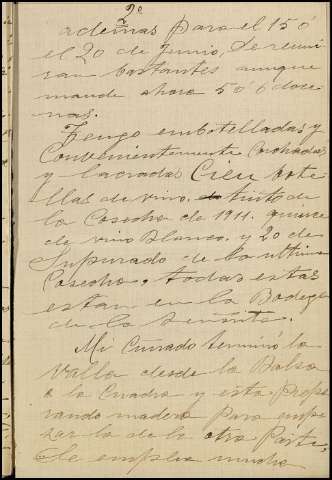 2º
ademas para el 15 ó
el 20 de Junio, se reuni
ran bastantes aunque
mande ahora 5 ó 6 doce
nas.
Tengo embotelladas y
Convenientemente Corchadas
y lacradas Cien bote
llas de vino tinto de
la Cosecha de 1911. quince
de vino Blanco, y 20 de
Supurado de la ultima
Cosecha, todas estas
estan en la Bodega
de la
Mi Cuñado terminó la
Valla desde la Balsa
a la Cuadra y esta prepa
rando madera para empe
zar la de la otra Parte,
Se emplea mucha